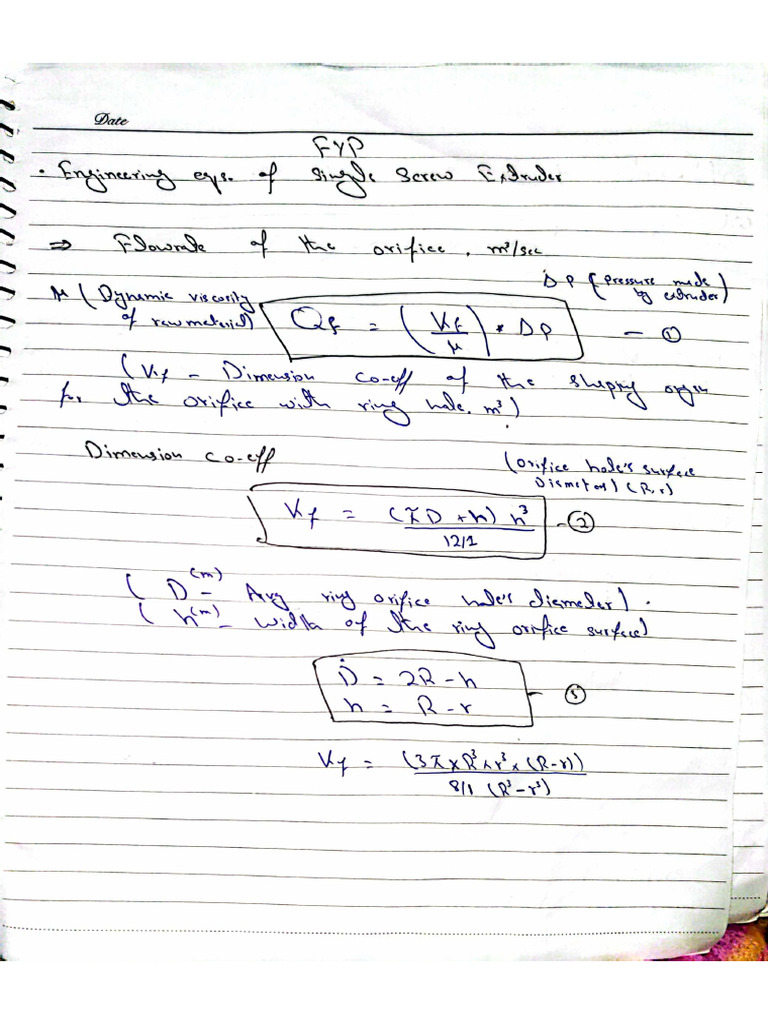 Date
FYP
• Engineering eqs. of Single Screw Extruder
⇒ Flowrate of the orifice, m³/sec
ΔP (pressure made by extruder)
μ (Dynamic viscosity of raw material)
Qf = (Kf / μ) * ΔP — ①
(Kf – Dimension co-eff of the shaping organ
for the orifice with ring hole. m³)
Dimension co-eff
(orifice hole's surface
Diameter) (R, r)
Kf = (πD + h) h³ / 12/1 — ②
( D (m) – Avg ring orifice hole's diameter) .
( h (m) – width of the ring orifice surface)
D = 2R – h
h = R – r
Kf = (3π × R³ × r³ × (R–r)) / 8/1 (R³ – r³)